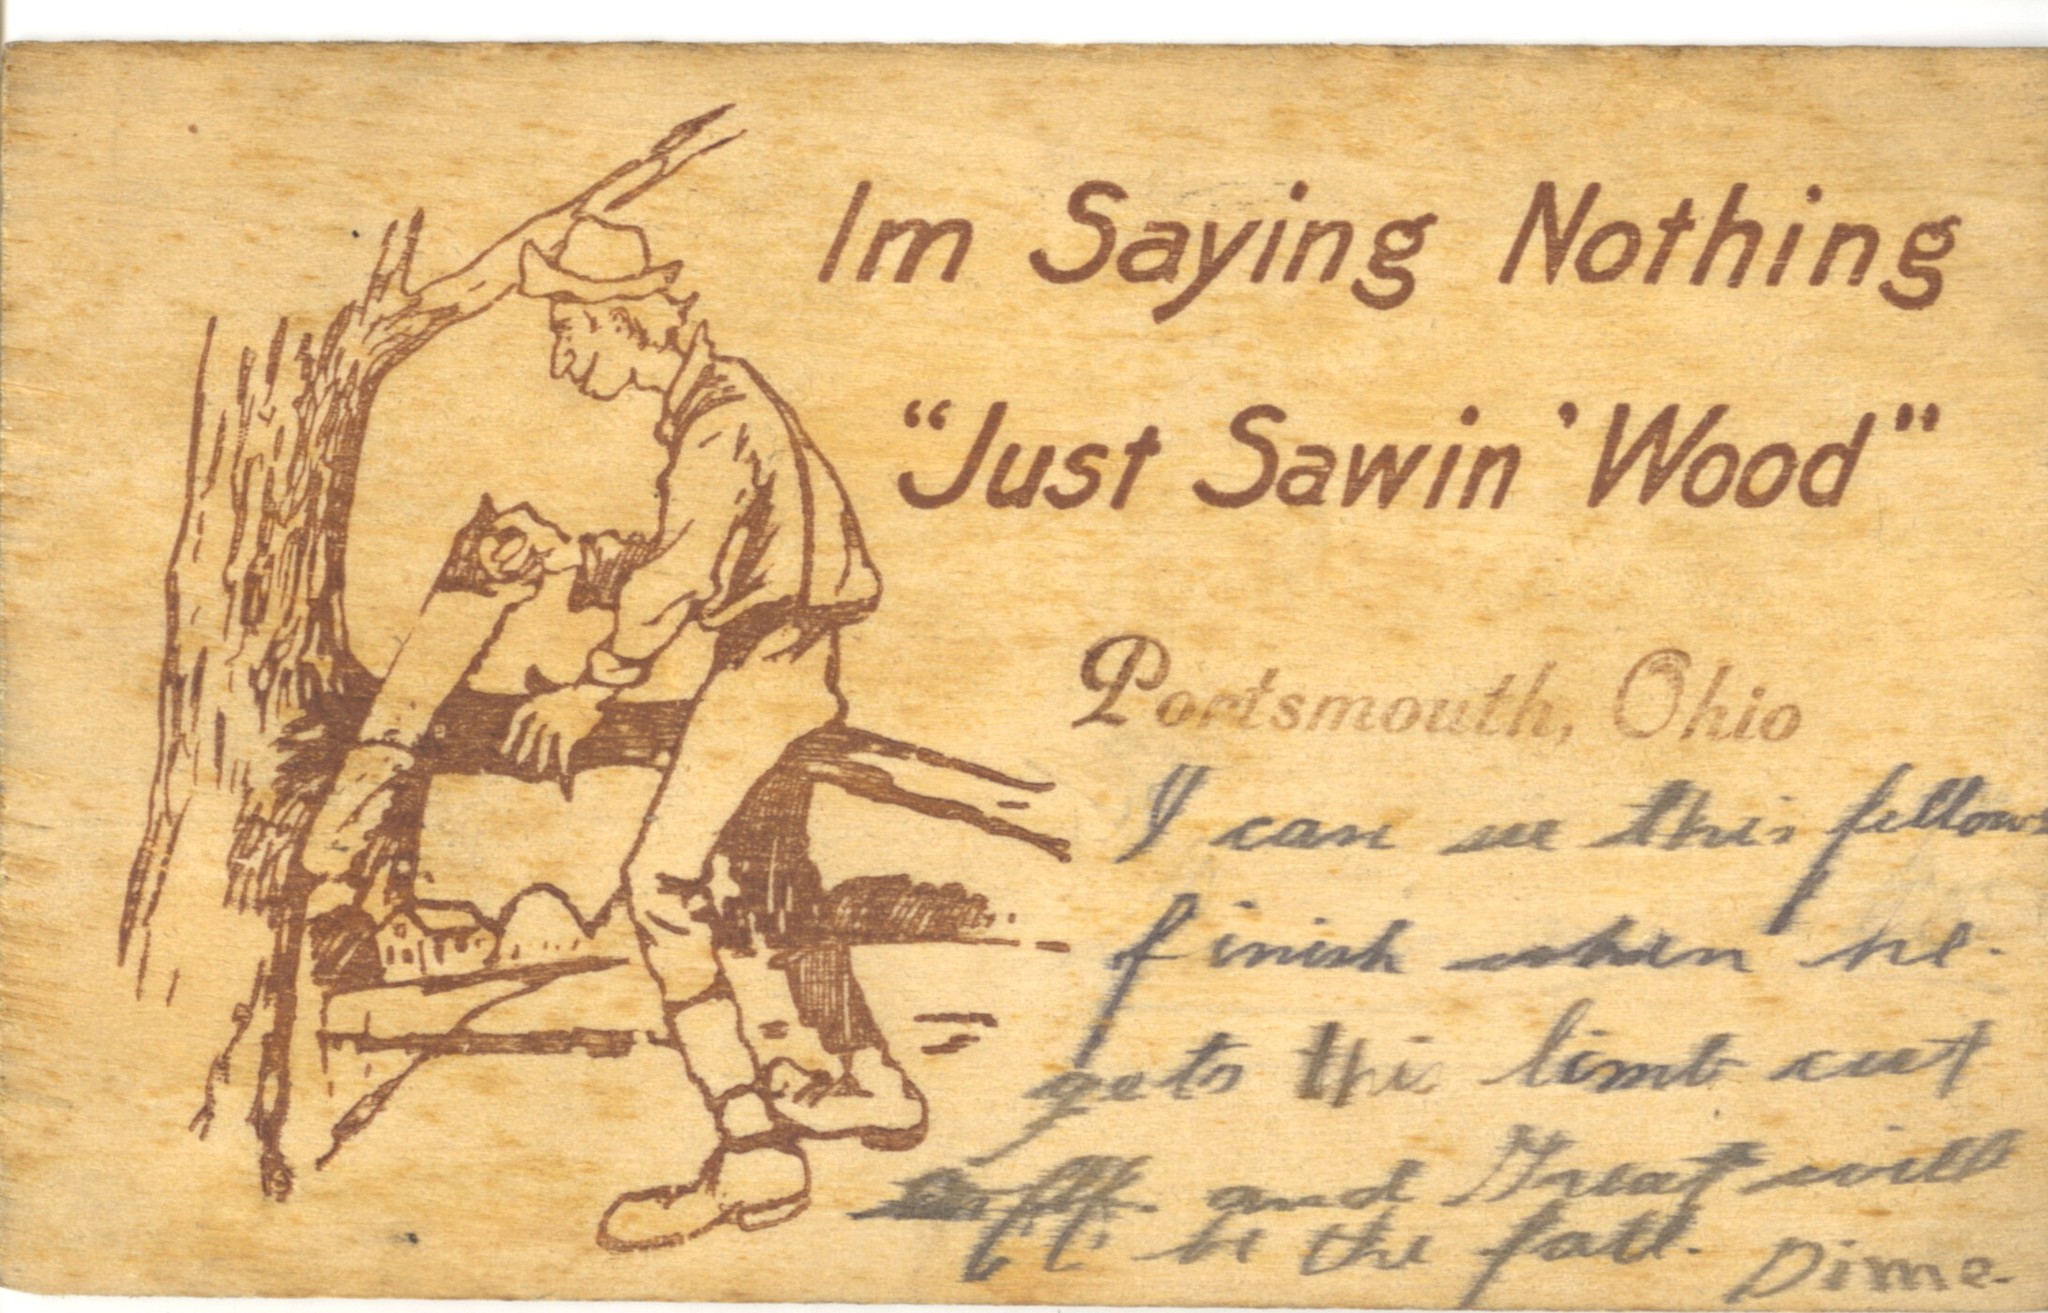 Im Saying Nothing
"Just Sawin' Wood"
Portsmouth, Ohio
I can see this fellows
finish when he.
gets this limb cut
off. and Great will
be the fall.
Dime.